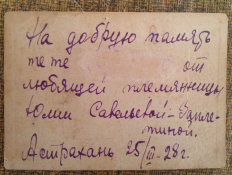 На добрую память
тете от
любящей племянницы
Юлии Савельевой-
тиной.
Астрахань 25/III-28г.